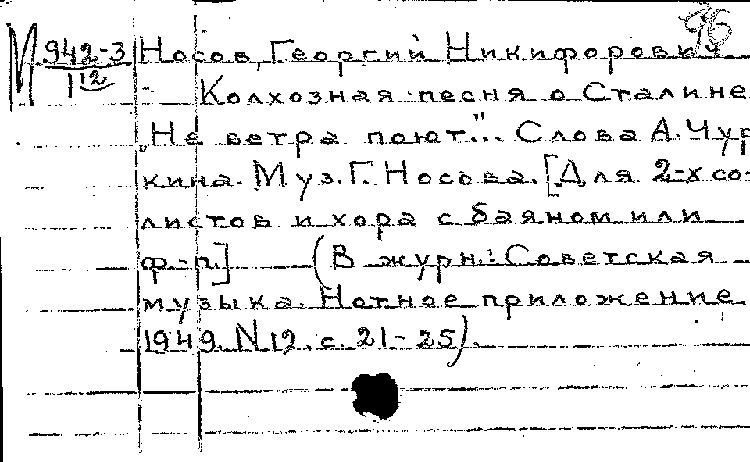 96
М 942-3 Носов, Георгий Никифорович
I 12 Колхозная песня о Сталине
„Не ветра поют..." Слова А. Чур-
кина. Муз. Г. Носова. [Для 2-х со-
листов и хора с баяном или
ф.-п.] (В журн.: Советская
музыка. Нотное приложение
1949. N 12. с. 21-25).